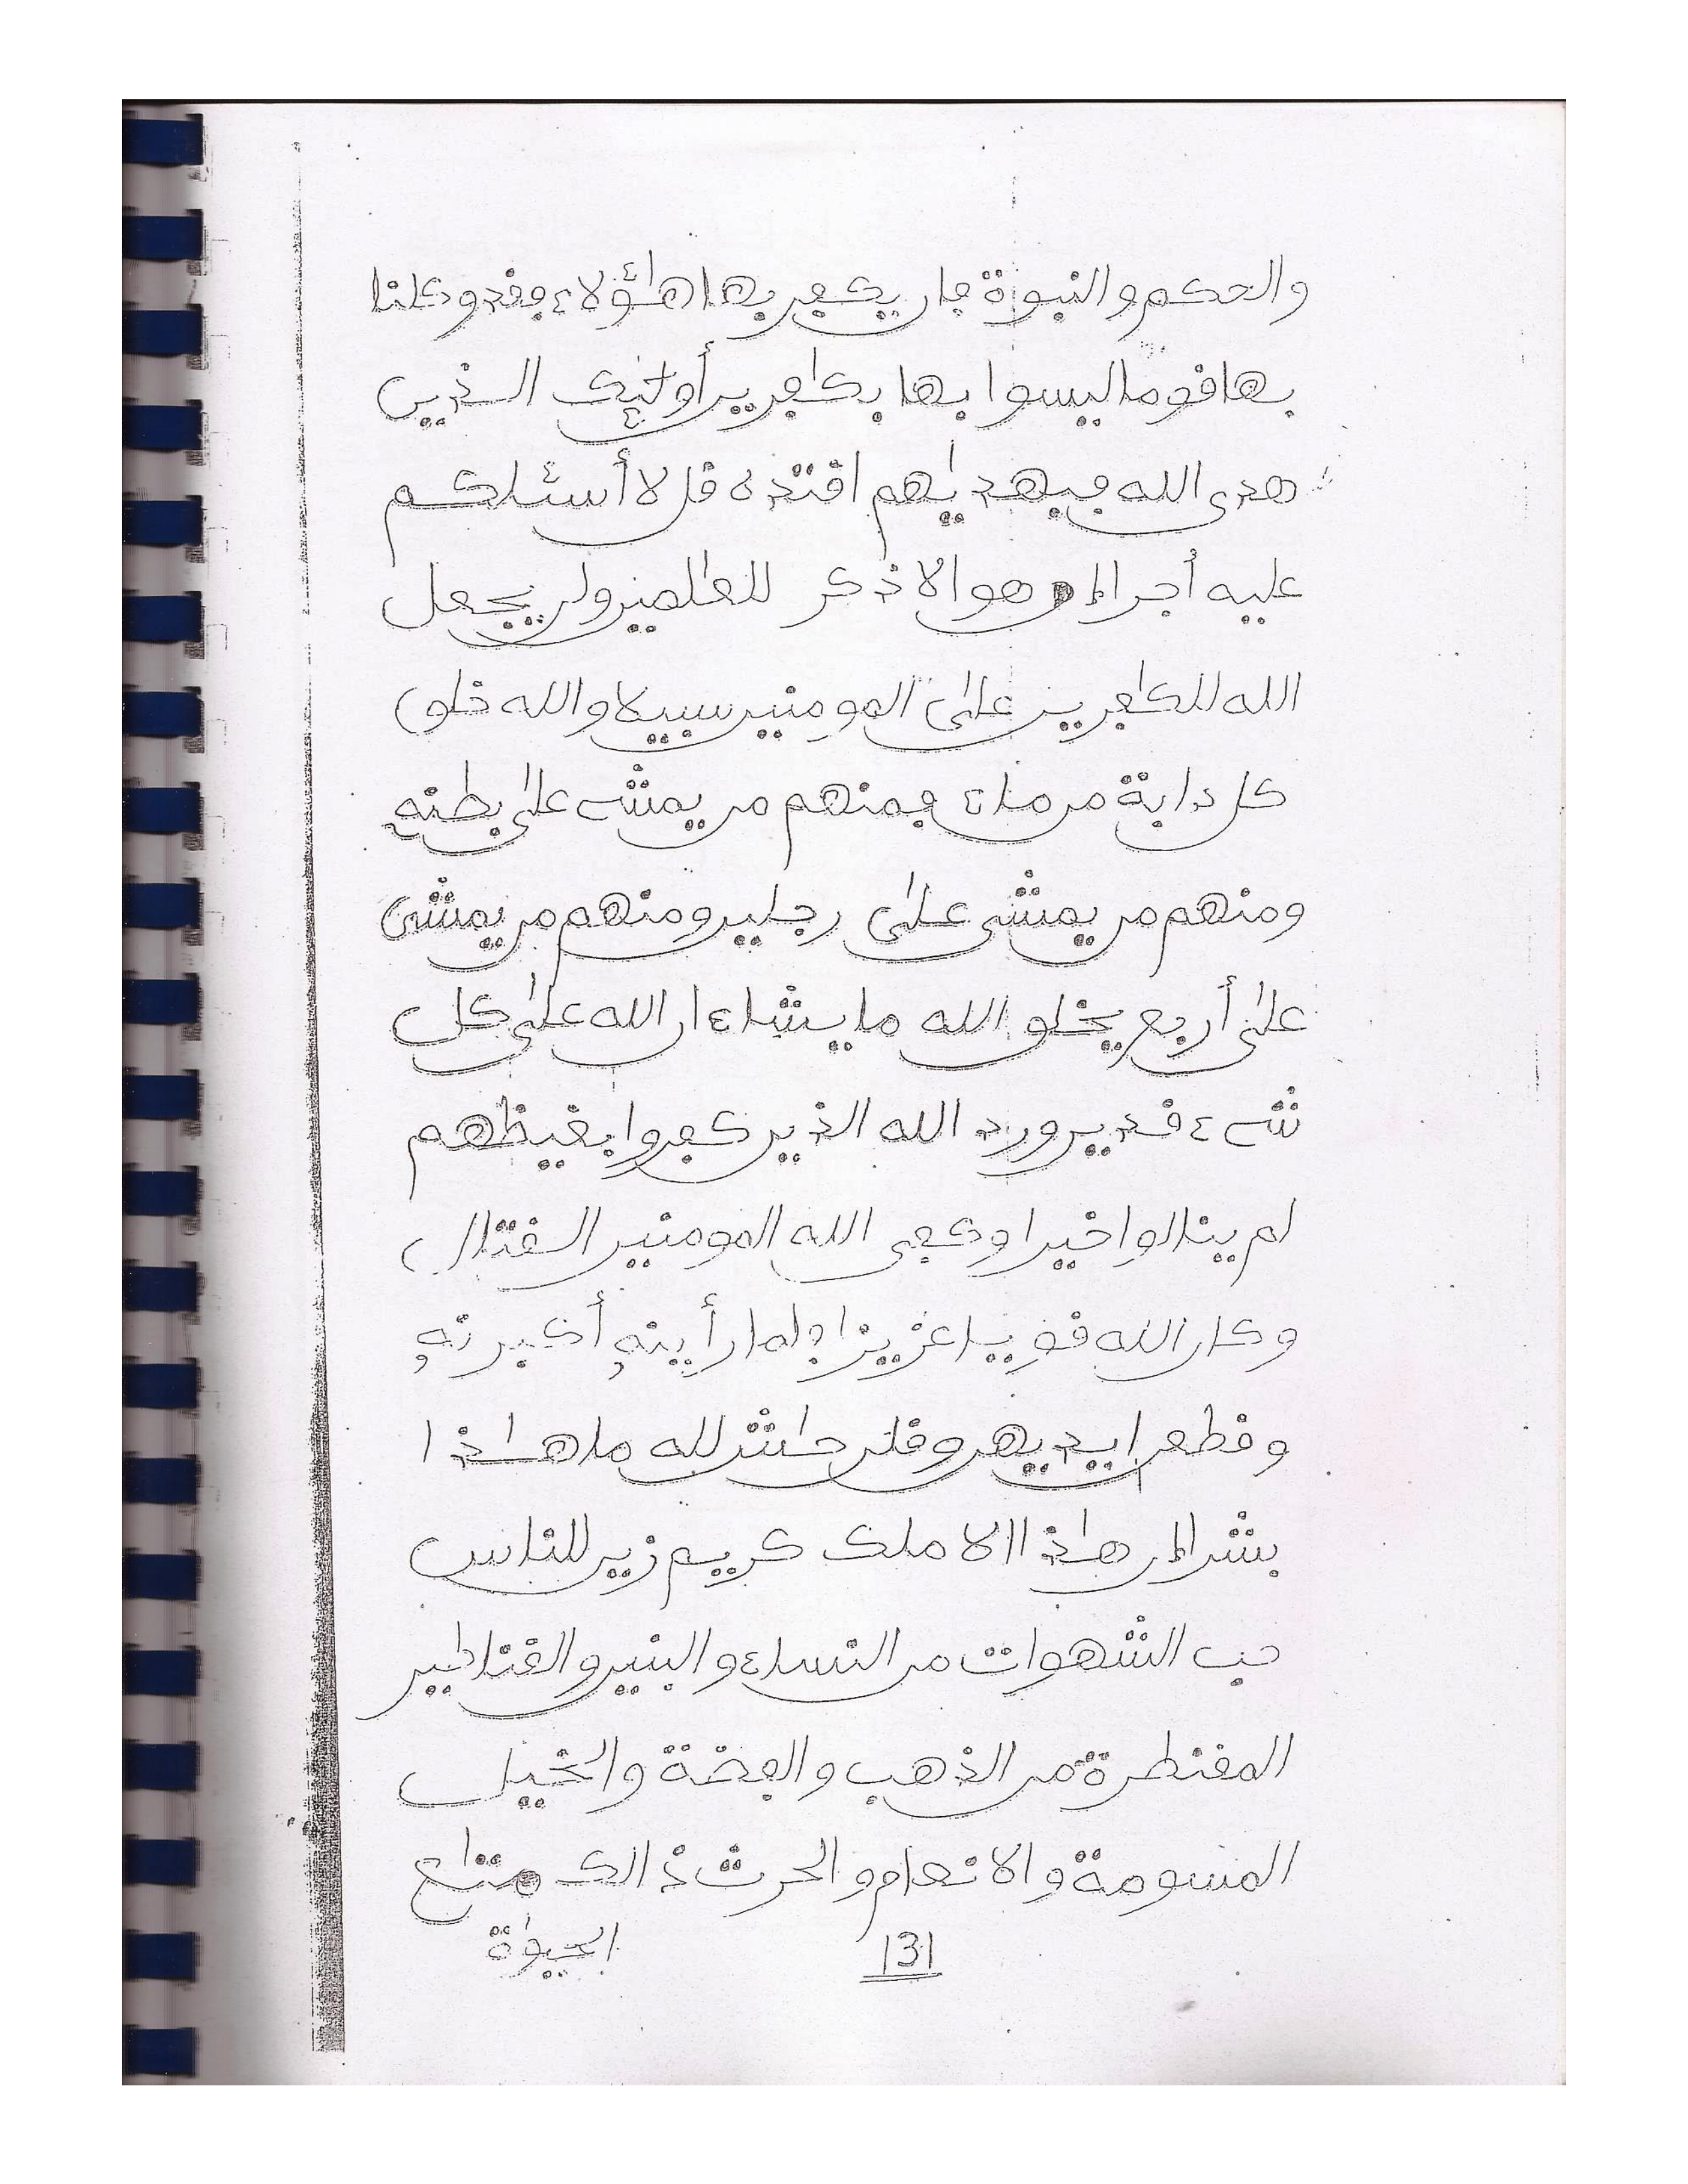 والحكم والنبوة فإن يكفر بها هٰؤلاء فقد وكلنا
بها قوما ليسوا بها بكٰفرين أولٰئك الذين
هدى الله فبهديٰهم اقتده قل لا أسئلكم
عليه أجرا إن هو إلا ذكر للعٰلمين ولن يجعل
الله للكٰفرين علىٰ المومنين سبيلا والله خلق
كل دابة من ماء فمنهم من يمشي علىٰ بطنه
ومنهم من يمشي علىٰ رجلين ومنهم من يمشي
علىٰ أربع يخلق الله ما يشاء ان الله علىٰ كل
شيء قدير ورد الله الذين كفروا بغيظهم
لم ينالوا خيرا وكفى الله المومنين القتال
وكان الله قويا عزيزا فلما رأينه أكبرنه
وقطعن ايديهن وقلن حٰش لله ما هٰذا
بشرا ان هٰذا الا ملك كريم زين للناس
حب الشهوات من النساء والبنين والقنٰطير
المقنطرة من الذهب والفضة والخيل
المسومة والانعام والحرث ذالك متٰع
131
الحيوٰة